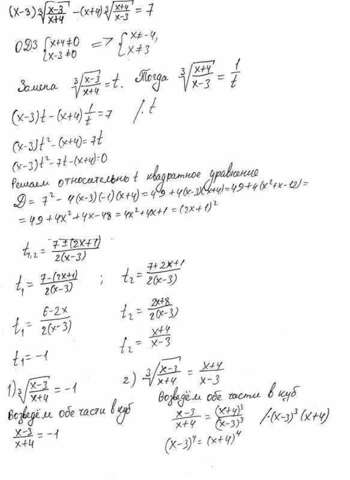 (x-3)∛((x-3)/(x+4)) -(x+4)∛((x+4)/(x-3)) = 7
ОДЗ {x+4≠0, x-3≠0 => {x≠-4, x≠3
Замена ∛((x-3)/(x+4)) = t. Тогда ∛((x+4)/(x-3)) = 1/t
(x-3)t -(x+4)1/t = 7 /·t
(x-3)t² -(x+4)=7t
(x-3)t² -7t-(x+4)=0
Решаем относительно t квадратное уравнение
D = 7² - 4(x-3)(-1)(x+4)=49+4(x-3)(x+4)=49+4(x²+x-12)=
=49+4x²+4x-48=4x²+4x+1=(2x+1)²
t₁,₂ = (7±(2x+1))/(2(x-3))
t₁ = (7-(2x+1))/(2(x-3)) ; t₂ = (7+2x+1)/(2(x-3))
t₁ = (6-2x)/(2(x-3)) t₂ = (2x+8)/(2(x-3))
t₁ = -1 t₂ = (x+4)/(x-3)
1) ∛((x-3)/(x+4)) = -1
Возведём обе части в куб
(x-3)/(x+4) = -1
2) ∛((x-3)/(x+4)) = (x+4)/(x-3)
Возведём обе части в куб
(x-3)/(x+4) = (x+4)³/(x-3)³ /·(x-3)³(x+4)
(x-3)⁴=(x+4)⁴